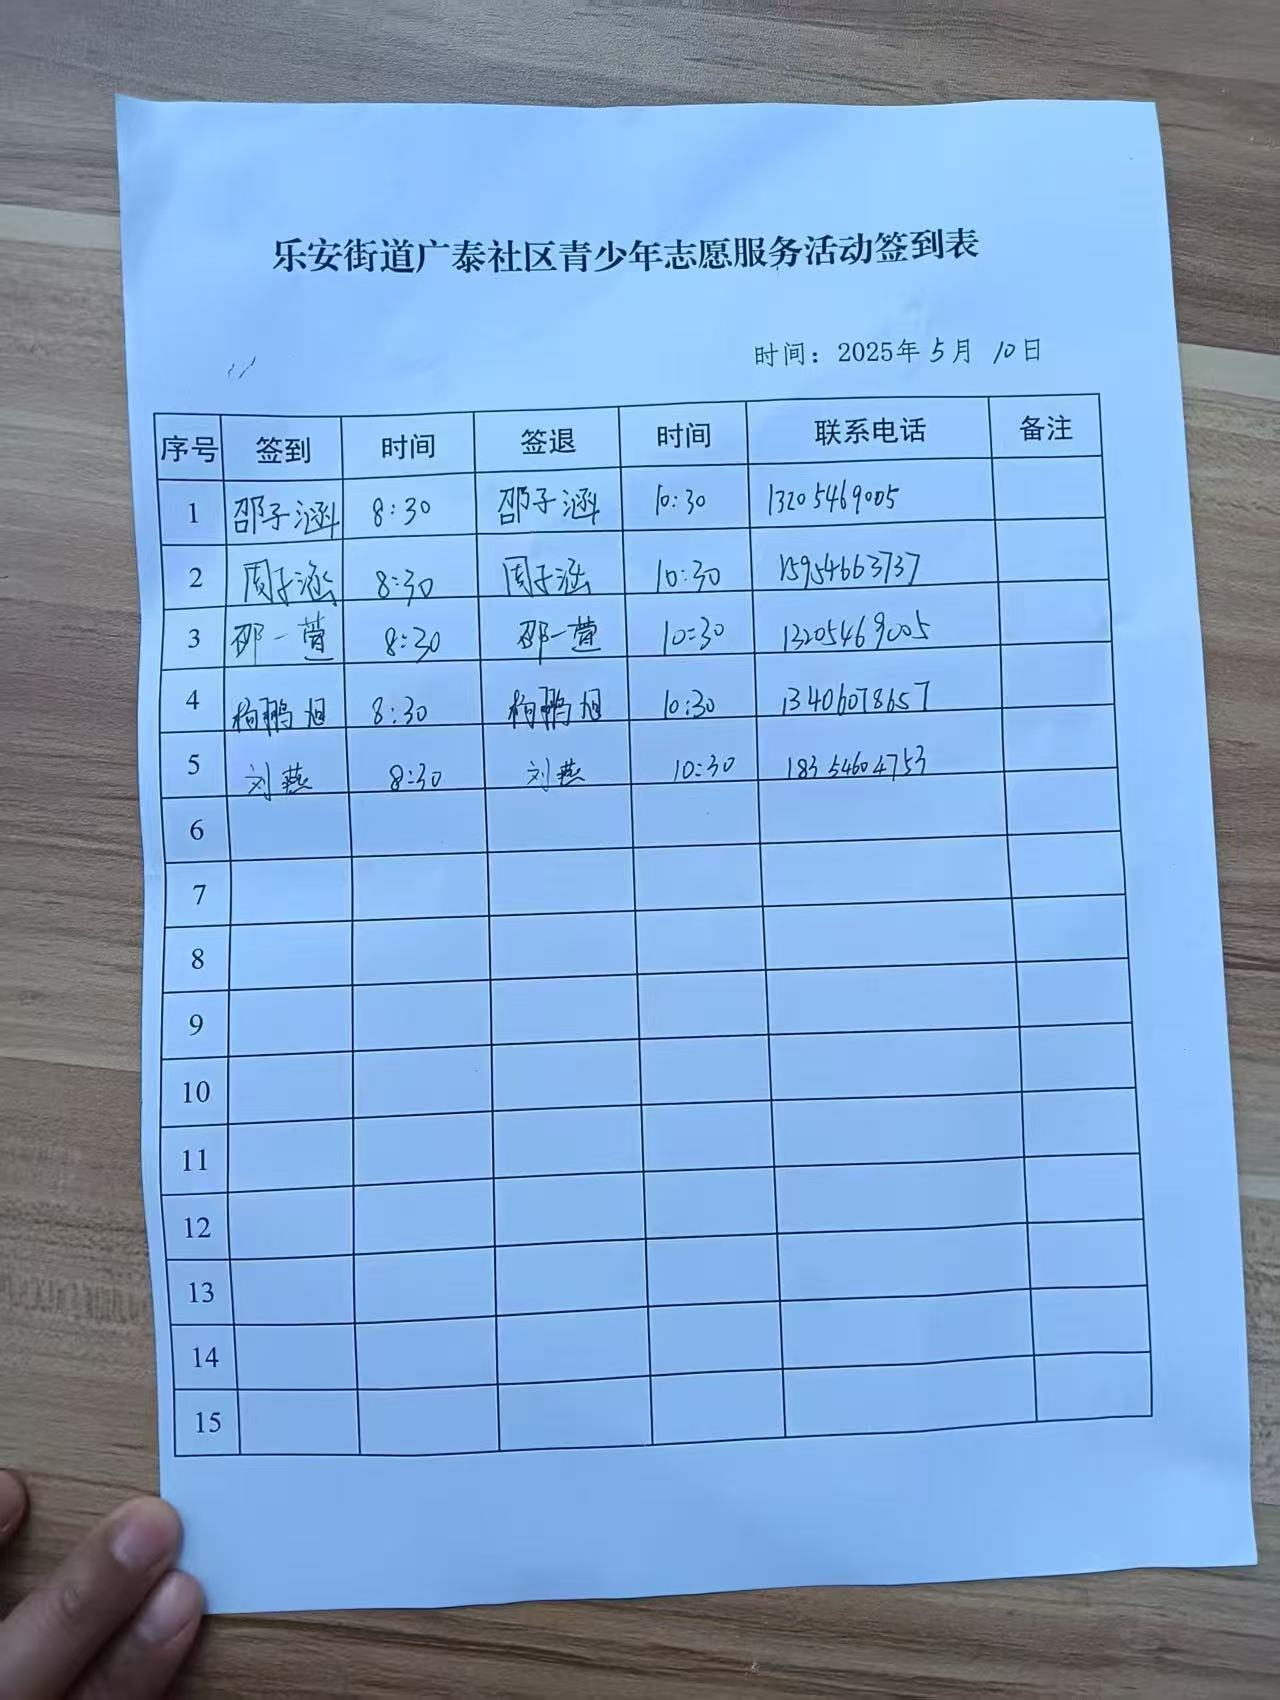 乐安街道广泰社区青少年志愿服务活动签到表
时间：2025年5月10日
序号 签到 时间 签退 时间 联系电话 备注
1 邵子涵 8:30 邵子涵 10:30 13205469005
2 周子涵 8:30 周子涵 10:30 15954663737
3 邵一萱 8:30 邵一萱 10:30 13205469005
4 杨鹏旭 8:30 杨鹏旭 10:30 13406078657
5 刘燕 8:30 刘燕 10:30 18354604753
6
7
8
9
10
11
12
13
14
15